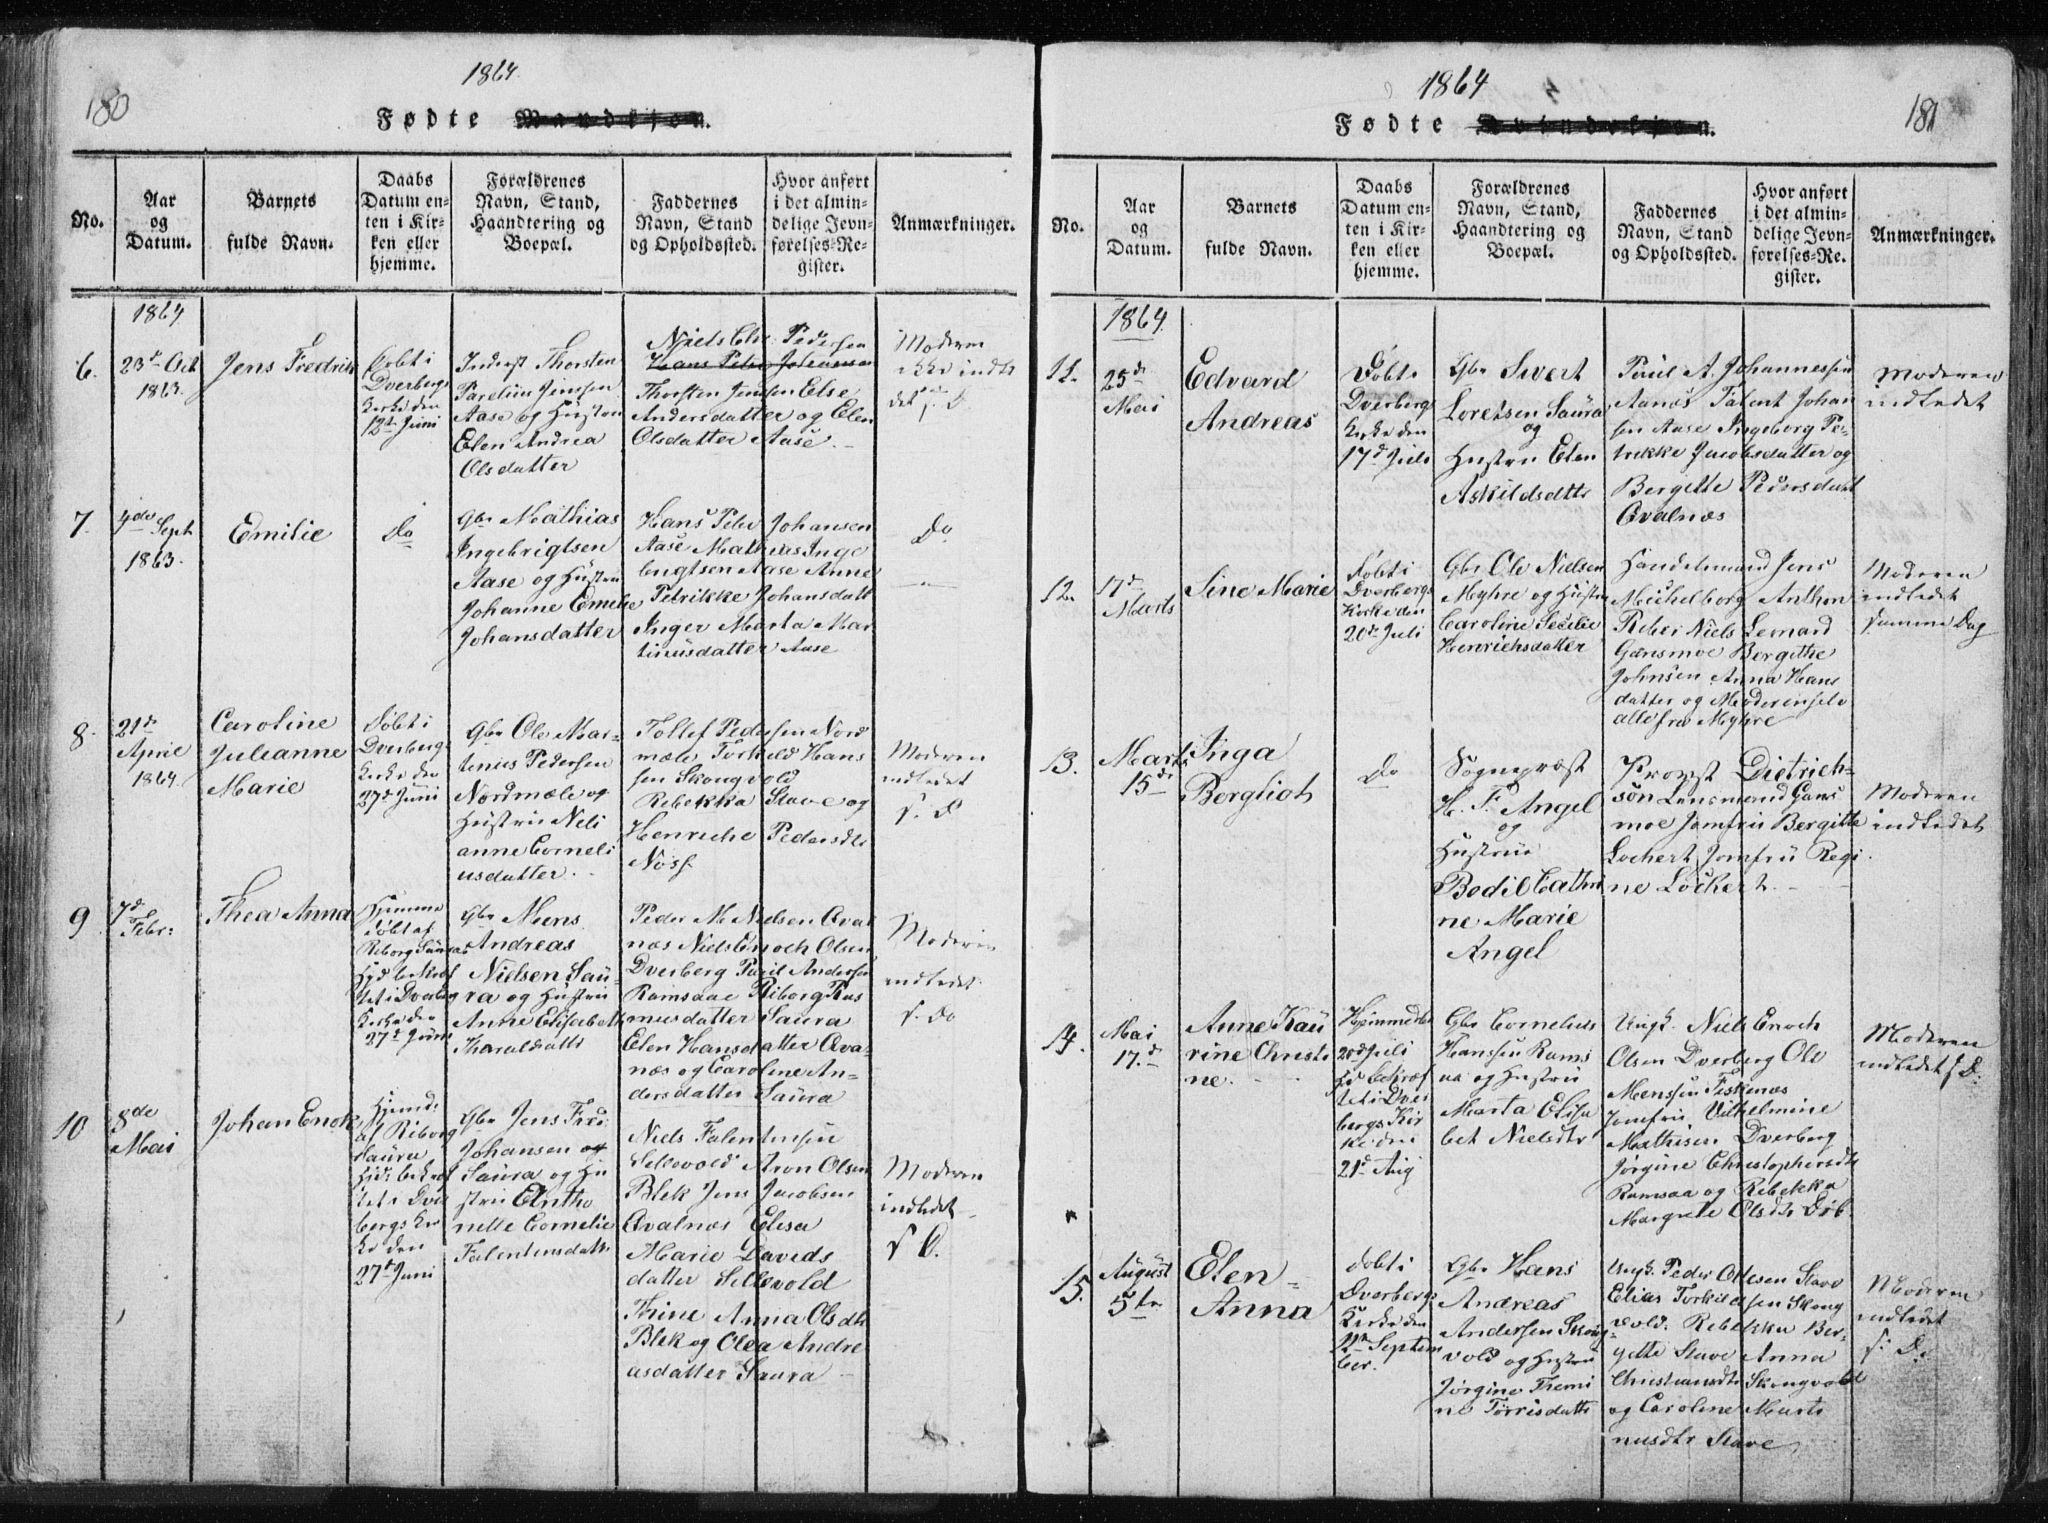 180
1864
Fødte Mandkjøn.
No.
Aar
og
Datum.
Barnets
fulde Navn.
Daabs
Datum en-
ten i Kir-
ken eller
hjemme.
Forældrenes
Navn, Stand,
Haandtering og
Boepæl.
Faddernes
Navn, Stand
og Opholdssted.
Hvor anført
i det almin-
delige Jevn-
førelses-Re-
gister.
Anmærkninger.
1864
6.
23d Oct
1863.
Jens Fredrik
Døbt i
Dverbergs
Kirke den
12t Juni
Inderst Thorsten
Parelius Jensen
Aase og Hustru
Elen Andrea
Olsdatter
Niels Chr Pedersen
Hans Peter Johansen
Thorsten Jensen Else
Andersdatter og Elen
Olsdatter Aase.
Moderen
ikke indle
det s. D
7.
4de Sept
1863.
Emilie
Do
Gbr Mathias
Ingebrigtsen
Aase og Hustru
Johanne Emelie
Johansdatter
Hans Peter Johansen
Aase Mathias Inge
brigtsen Aase Anne
Petrikke Johansdatt
Inger Marta Mar
tinusdatter Aase
Do
8.
21de
April
1864.
Caroline
Julianne
Marie
Døbt i
Dverbergs
Kirke den
27de Juni
Gbr Ole Mar-
tinus Pedersen
Nordmæle og
Hustru Neli
anne Corneli
usdatter.
Tollef Pedersen Nord
mæle Torkild Hans
sen Skongvold
Rebekka Stave og
Henriche Pedersdtr
Nøss.
Moderen
indledet
s. D
9
7d
Febr:
Thea Anna
Hjemme
døbt af
Riborg Saura
Hjd bekræf
tet i Dverberg
Kirke den
27d Juni
Gbr Mens
Andreas
Nielsen Sau-
ra og Hustru
Anne Elisabeth
Tharaldsdatt
Peder M Nielsen Aval
næs Niels Enoch Olsen
Dverberg Paul Andersen
Ramsaae Riborg Ras
musdatter Saura
Elen Hansdatter Ava-
næs og Caroline An-
dersdatter Saura
Moderen
indledet
s. Do
10
8de
Mai
Johan Enok
Hjemd:
af Riborg
Saura
Hjd: bekræf
tet i Dver
bergs Kir
ke den
27d Juni
Gbr Jens Fred:
Johansen og
Saura og Hu
stru Antho
nette Cornelie
Falentinsdatt
Niels Falentinsen
Sellevold Aron Olsen
Blek Jens Jacobsen
Avalnæs Elisa
Marie Davids
datter Sellevold
Trine Anna Olsdtr
Blek og Olea Andre
asdatter Saura
Moderen
indledet
s D.
1864
181
Fødte Qvindekjøn.
No.
Aar
og
Datum.
Barnets
fulde Navn.
Daabs
Datum en-
ten i Kir-
ken eller
hjemme.
Forældrenes
Navn, Stand,
Haandtering og
Boepæl.
Faddernes
Navn, Stand
og Opholdssted.
Hvor anført
i det almin-
delige Jevn-
førelses-Re-
gister.
Anmærkninger.
1864.
11.
25de
Mai
Edvard
Andreas
Døbt i
Dverbergs
Kirke den
17d Juli
Gbr Sivert
Loretsen Saura
og
Hustru Elen
Askildsdtr
Paul A. Johannessen
Aanæs Talent Johan
sen Aase Ingeborg Pe-
trikke Jacobsdatter og
Bergitte Pedersdatt
Avalnæs
Moderen
indledet
12.
17d
Marts
Sine Marie
Døbt i
Dverbergs
Kirke den
20de Juli
Gbr Ole Nielsen
Myhre og Hustru
Caroline Secilie
Henrichsdatter
Handelsmand Jens
Michelborg Anthon
Reber Niels Lemard
Gansmoe Bergithe
Johnsen Anna Hans
datter og Moderen selv
alle fra Myhre
Moderen
indledet
samme Dag
13.
Marts
15de
Inga
Bergliot
Do
Sognepræst
H. F. Angel
og
Hustrue
Bodil Cathri
ne Marie
Angel
Provst Dietrich-
son Lensmand Gans
moe Jomfru Bergitte
Lochert Jomfru Regi
ne Lockert.
Moderen
indledet
14.
Mai
17.de
Anne Kau
rine Christi
ne.
Hjemmedøbt
20d Juli
bekræf
tet i Dver
bergs Kir
ke den
21d Aug
Gbr Cornelius
Hanssen Rams
aa og Hustru
Marta Elisa
bet Nielsdtr
Ungk. Niels Enoch
Olsen Dverberg Ole
Menssen Fiskenæs
Jomfru Vilhelmine
Mathisen Dverberg
Jørgine Christophersdtr
Ramsaa og Rebekka
Margrete Olsdtr Dvb.
Moderen
indledet s D.
15.
August
5te
Elen
Anna
Døbt i
Dverbergs
Kirke den
Septem
ber.
Gbr Hans
Andreas
Andersen Skong
vold og Hustru
Jørgine Themi
ne Tørrisdatter
Ungk. Peder Ottesen Stave
Elias Torkildsen Skong
vold. Rebekka Ber-
gette Stave Anna
Christiansdtr Skongvold
og Caroline Marti
nusdtr Stave
Moderen
indledet
s. D.